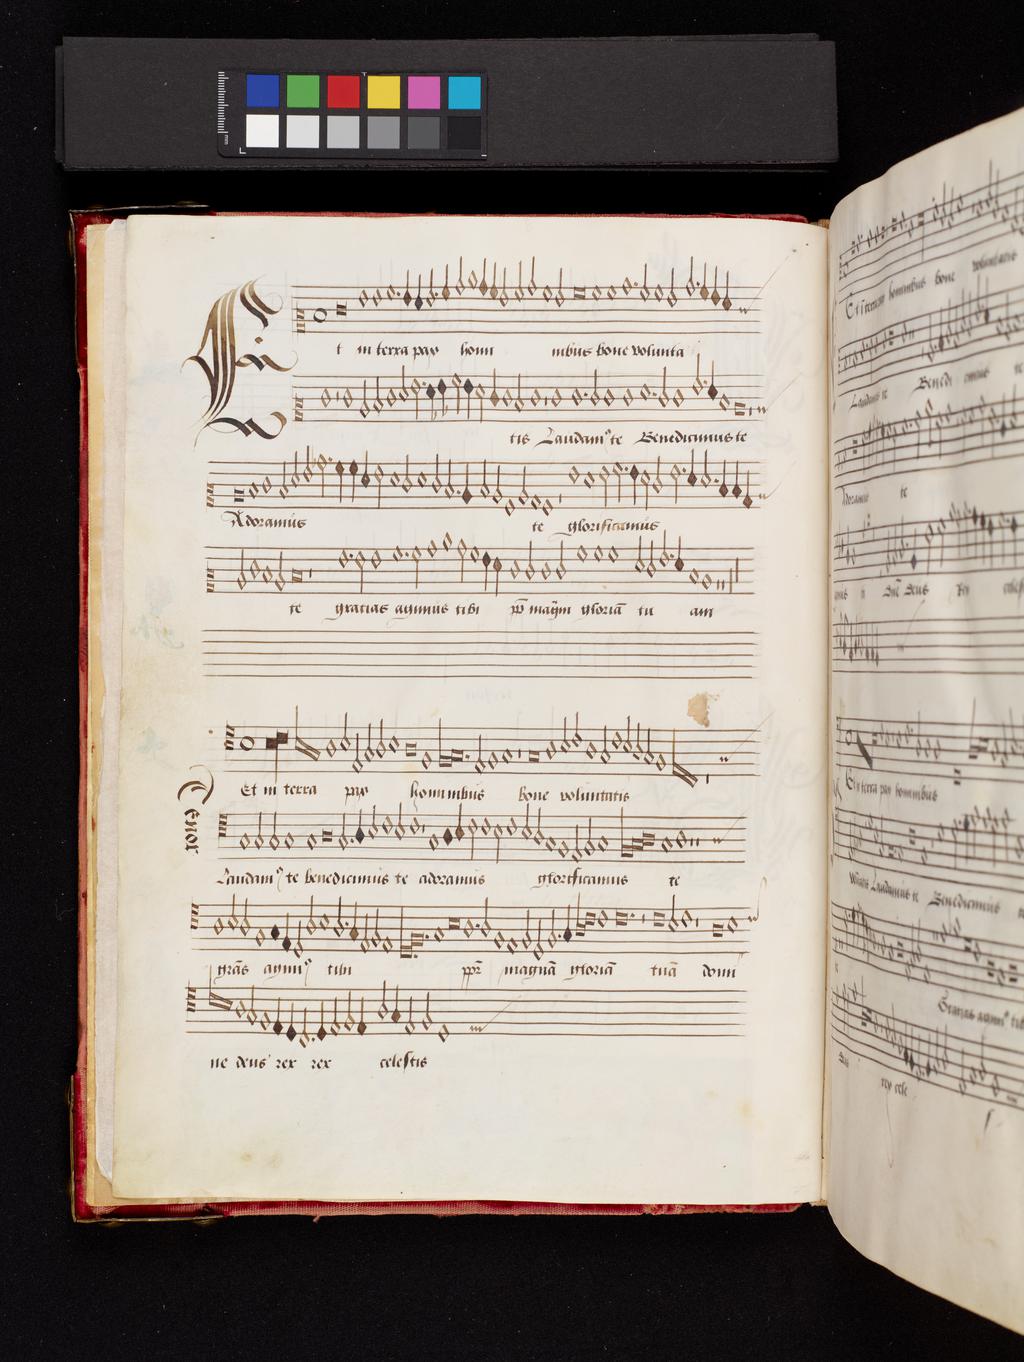 Et in terra pax homi nibus bone volunta
tis Laudam9 te Benedicimus te
Adoramus te glorificamus
te gratias agimus tibi pp̄ magn̄ gloriā tu am
Tenor
Et in terra pax hominibus bone voluntatis
Laudam9 te benedicimus te adoramus glorificamus te
gr̄as agim9 tibi ppr̄ magnā gloriā tuā domi
ne deus rex rex celestis
Et in terra pax hominibus bone voluntatis
Laudamus te Benedi cimus te
Adoramus te
Dn̄e Deus Rex celest
Et in terra pax hominibus
Laudamus te Benedicimus
Gratias agim9 tibi
rex cele